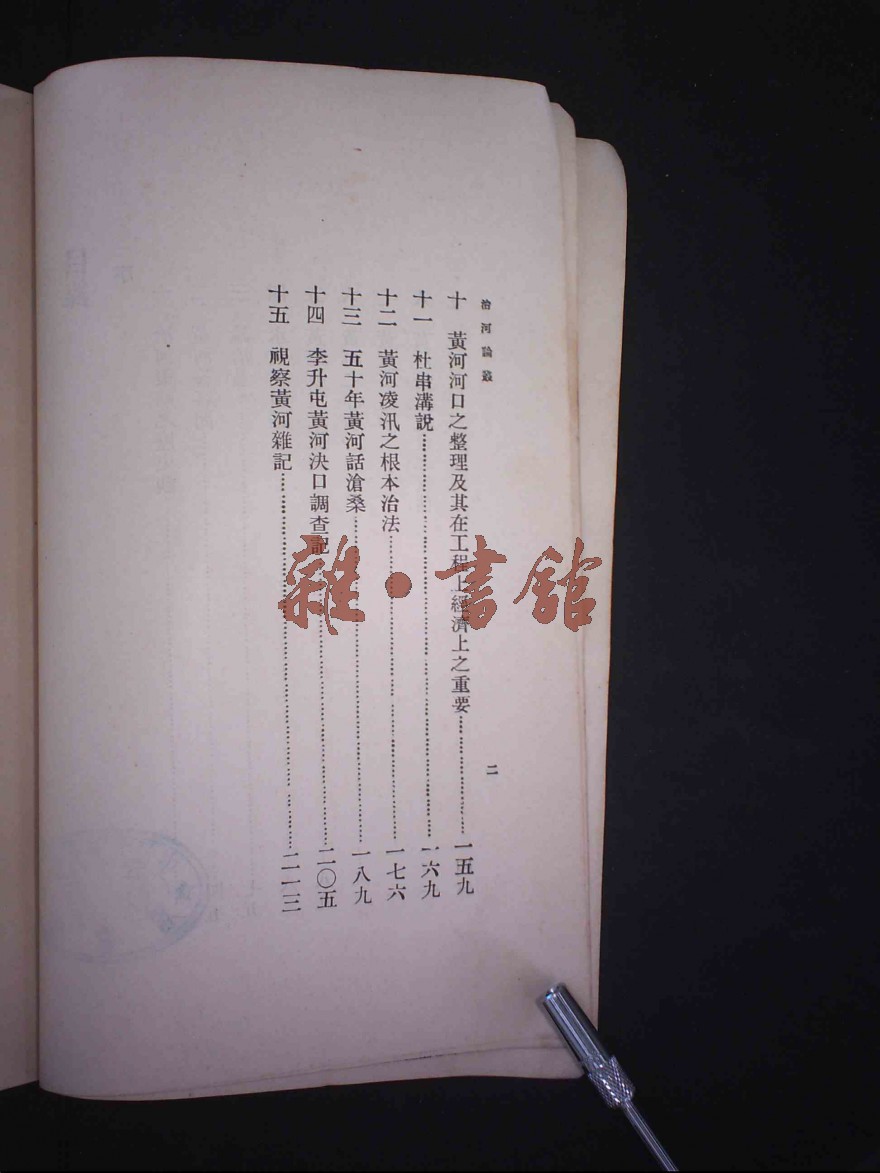 治河論叢
二
十 黃河河口之整理及其在工程上經濟上之重要……一五九
十一 杜串溝說……一六九
十二 黃河凌汛之根本治法……一七六
十三 五十年黃河話滄桑……一八九
十四 李升屯黃河決口調查記……二〇五
十五 視察黃河雜記……二一三
雜·書館